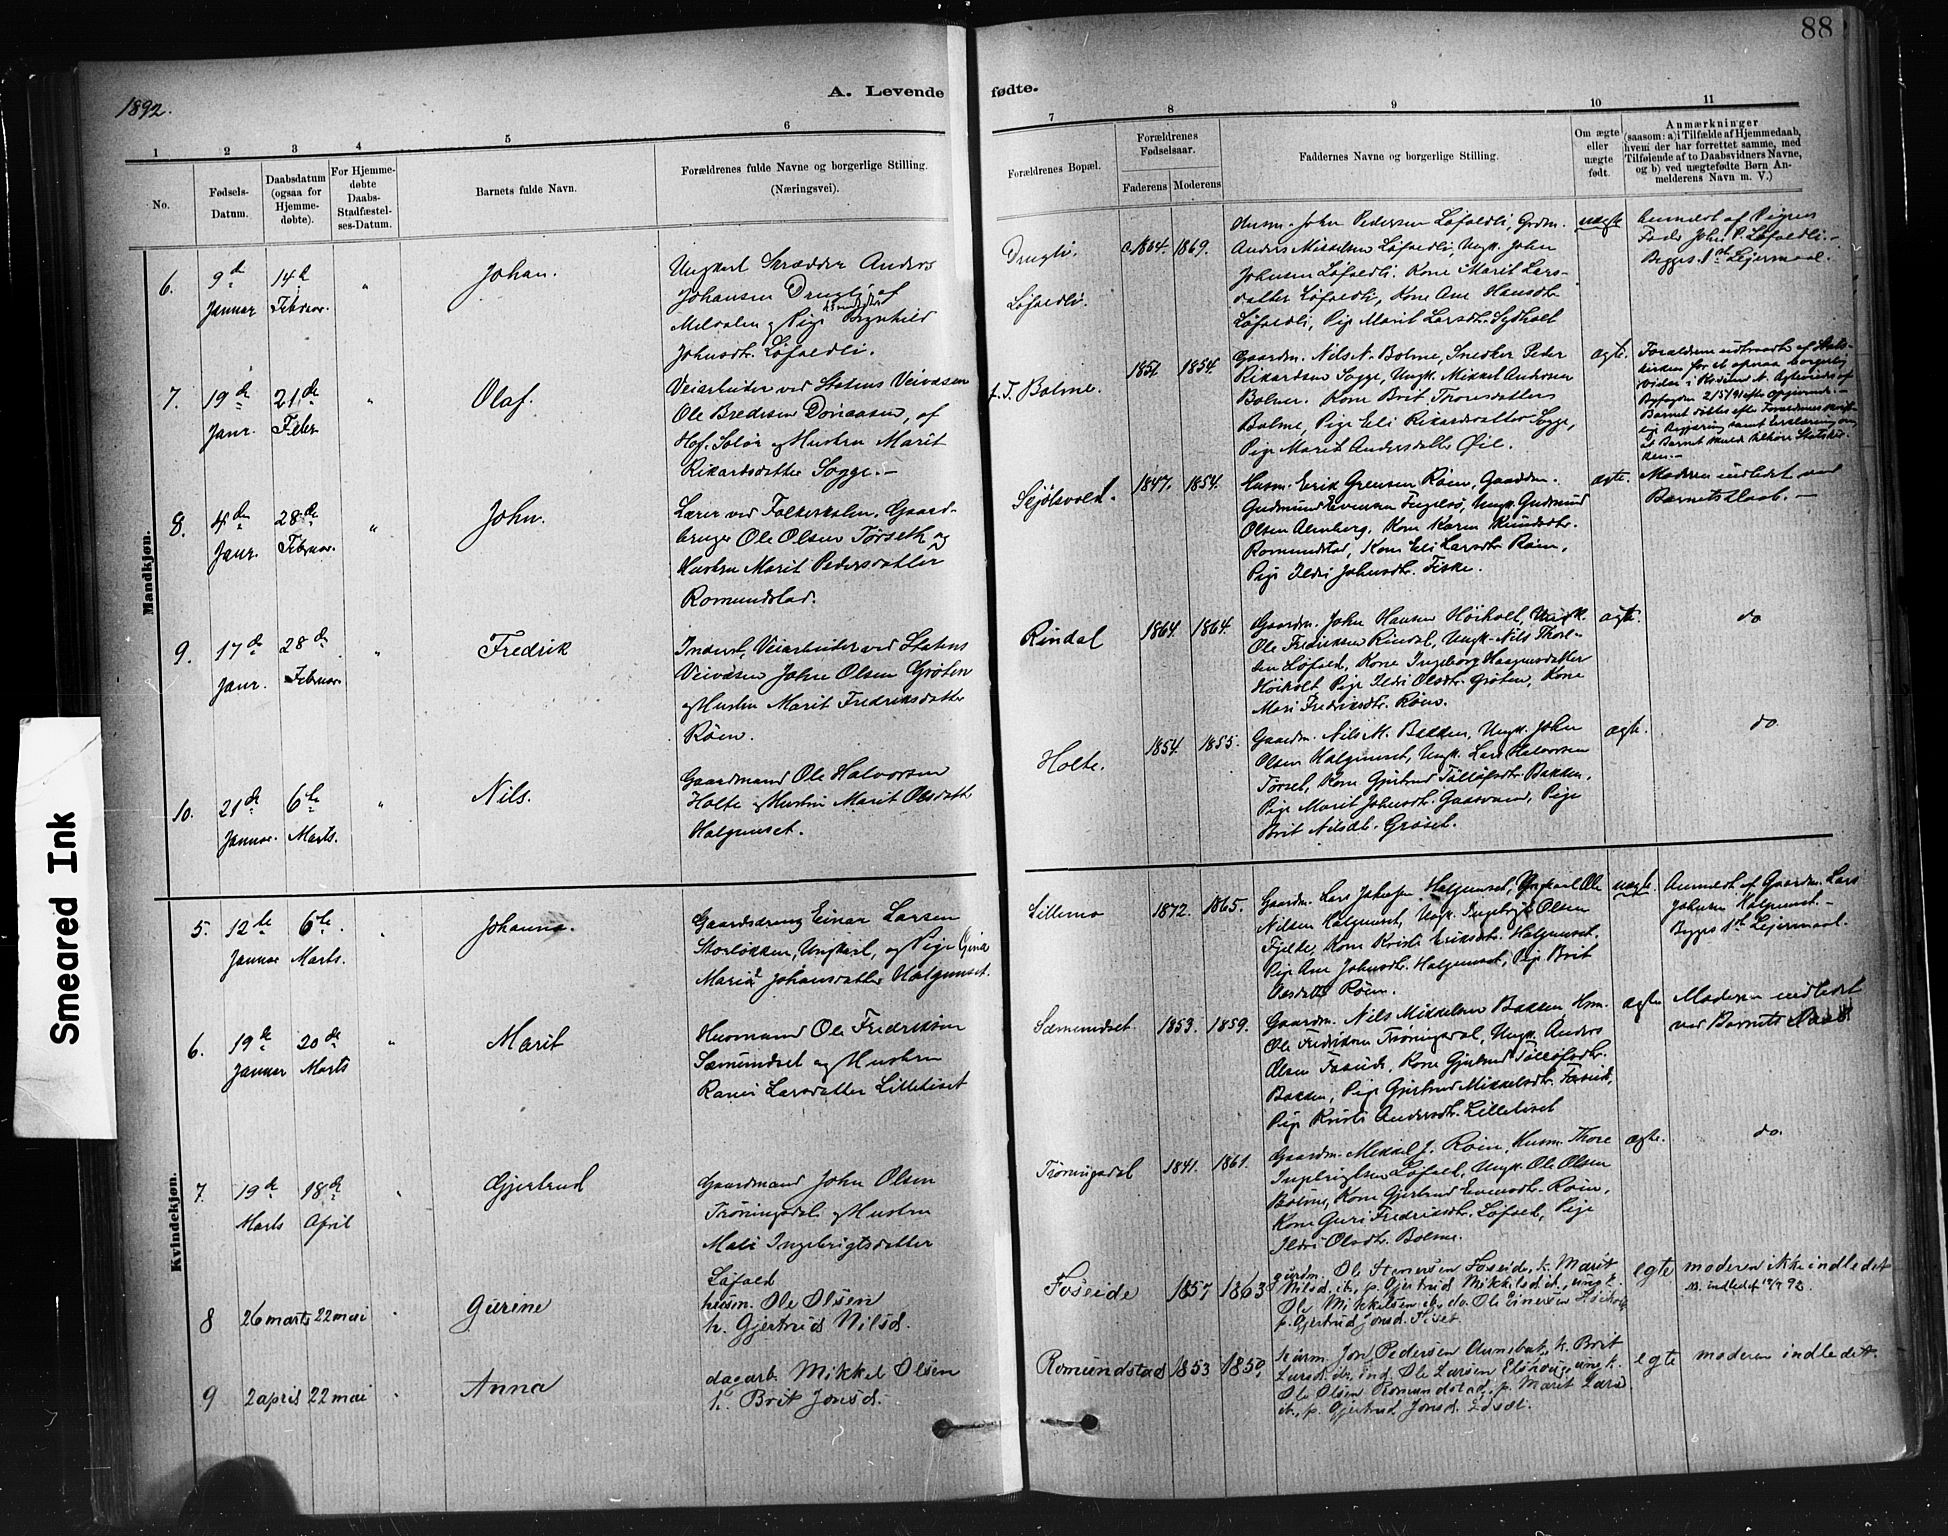 88
1892.
A. Levende fødte.
1 2 3 4 5 6 7 8 9 10 11
No.
Fødsels-
Datum.
Daabsdatum
(ogsaa for
Hjemme-
døbte).
For Hjemme-
døbte
Daabs-
Stadfæstel-
ses-Datum.
Barnets fulde Navn.
Forældrenes fulde Navne og borgerlige Stilling.
(Næringsvei).
Forældrenes Bopæl.
Forældrenes
Fødselsaar.
Faderens Moderens
Faddernes Navne og borgerlige Stilling.
Om ægte
eller
uægte
født.
Anmærkninger
(saasom: a) i Tilfælde af Hjemmedaab,
hvem der har forrettet samme, med
Tilføiende af to Daabsvidners Navne,
og b) ved uægtefødte Børn An-
melderens Navn m. V.)
Mandkjøn.
6. 9de Januar 14de Februar. " Johan.
Ungkarl Skrædder Anders
Johansen Drugli af
Meldalen og Pige Brynhild
Johnsdtr. Løfaldli.
Drugli.
Løfaldli.
1864. 1869.
Husm. John Pedersen Løfaldli, Grdm.
Anders Mikkelsen Løfaldli, Ungk. John
Johnsen Løfaldli, Kone Marit Lars-
datter Løfaldli, Kone Ane Hansdtr.
Løfaldli, Pige Marit Larsdtr. Sydhalt
uægte
Anmeldt af Pigens
Fader John P. Løfaldli.
Begges 1ste Leiermaal.
7. 19de Janr. 21de Febr. " Olaf.
Veiarbeider ved Statens Veivæsen
Ole Bredesen Donaasen, af
Hof, Solør og Hustru Marit
Rikardsdatter Sogge.
t. T. Bolme.
1851. 1854.
Gaardm. Nils N. Bolme, Snedker Peder
Rikardsen Sogge, Ungk. Mikkel Andersen
Bolme. Kone Brit Thoresdatter
Bolme, Pige Eli Rikardsdatter Sogge,
Pige Marit Andersdatter Øie.
ægte.
8. 4de Janr. 28de Februar. " John.
Lærer ved Folkeskolen, Gaard-
bruger Ole Olsen Tørseth og
Hustru Marit Pedersdatter
Romundstad.
Skjølsvold.
1847. 1854.
Husm. Erik Grensen Røen, Gaardm.
Gudmund Evensen Fugelsø, Ungk. Gudmund
Olsen Almberg, Kone Karen Knudsdtr.
Romundstad, Kone Eli Larsdtr. Røen,
Pige Ildri Johnsdtr. Fiske.
ægte.
Moderen indledet ved
Barnets Daab.
9. 17de Janr. 28de Februar " Fredrik
Inderst, Veiarbeider ved Statens
Veivæsen John Olsen Grøten
og Hustru Marit Fredriksdatter
Røen.
Rindal
1864. 1864.
Gaardm. John Hansen Høiholt, Ungk.
Ole Fredriksen Rindal, Ungk. Nils Thore-
sen Løfald, Kone Ingeborg Haagensdatter
Høiholt Pige Ildri Olsdtr. Grøten, Kone
Mari Fredriksdtr. Røen.
ægte.
do
10. 21de Januar. 6te Marts. " Nils.
Gaardmand Ole Halvorsen
Holte og Hustru Marit Olsdatter
Halgunset.
Holte.
1854. 1855.
Gaardm. Nils M. Bakken, Ungk. John
Olsen Halgunset, Ungk. Lars Halvorsen
Tørset, Kone Gjertrud Tølløfsdtr. Bakken,
Pige Marit Johnsdtr. Gaasvand, Pige
Brit Nilsdt. Grøset.
ægte.
do
Kvindekjøn.
5. 12te Januar 6te Marts. " Johanna.
Gaardsdreng Einar Larsen
Storløkken, Ungkarl, og Pige Gina
Maria Johansdatter Halgunset.
Lillemo
1872. 1865.
Gaardm. Lars Johnsen Halgunset, Ungkarl Ole
Nilsen Halgunset, Ungk. Ingebrigt Olsen
Fjelte, Kone Kristi Eriksdtr. Halgunset.
Pige Ane Johnsdtr. Halgunset, Pige Brit
Olsdatter Røen.
uægte.
Anmeldt af Gaardm. Lars
Johnsen Halgunset.
Begges 1ste Leiermaal.
6. 19de Januar 20de Marts " Marit
Husmand Ole Fredriksen
Sæmundset og Hustru
Ranei Larsdatter Lilleliset
Sæmundset.
1859. 1859.
Gaardm. Nils Mikkelsen Bakken Hsm.
Ole Fredriksen Trøningsdal, Ungk. Anders
Olsen Foseide, Kone Gjertrud Tølløfsdtr.
Bakken, Pige Gjertrud Mikkelsdtr. Foseide,
Pige Kristi Andersdtr. Lilleliset
ægte
Moderen indledet
ved Barnets Daab
7. 19de Marts 18de April " Gjertrud
Gaardmand John Olsen
Trøningsdal og Hustru
Mali Ingebrigtsdatter
Løfald
Trøningsdal
1841. 1861.
Gaardm. Mikkel J. Røen, Husm. Thore
Ingebrigtsen Løfald, Ungk. Ole Olsen
Bolme, Kone Gjertrud Evensdtr. Røen,
Kone Guri Fredriksdtr. Løfald, Pige
Ildri Olsdtr. Bolme.
ægte.
do.
8 26 marts 22 mai " Gurine
husm. Ole Olsen
h. Gjertrud Nilsd.
Foseide
1857 1863
gardm. Ole Einersen Foseide, k. Marit
Nilsd. ib., p. Gjertrud Mikkelsd. ib., ungk.
Ole Mikkelsen ib., do. Ole Einersen Høiholt,
p. Gjertrud Jonsd. Fiset.
egte
moderen ikke indledet
9 2 april 22 mai " Anna
dagarb. Mikkel Olsen
h. Brit Jonsd.
Romundstad
1853 1850
husm. Jon Pedersen Aunebak, k. Brit
Larsd. ib., ind. Ole Larsen Elshaug, ungk.
Ole Olsen Romundstad, p. Marit Larsd.
ib., p. Gjertrud Jonsd. Løsæt.
egte
moderen indledet
Smeared Ink